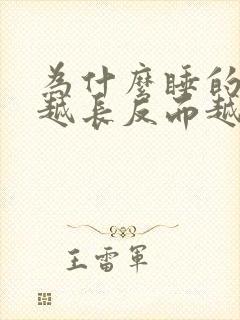 為什麼睡的
越長反而越
王雷軍